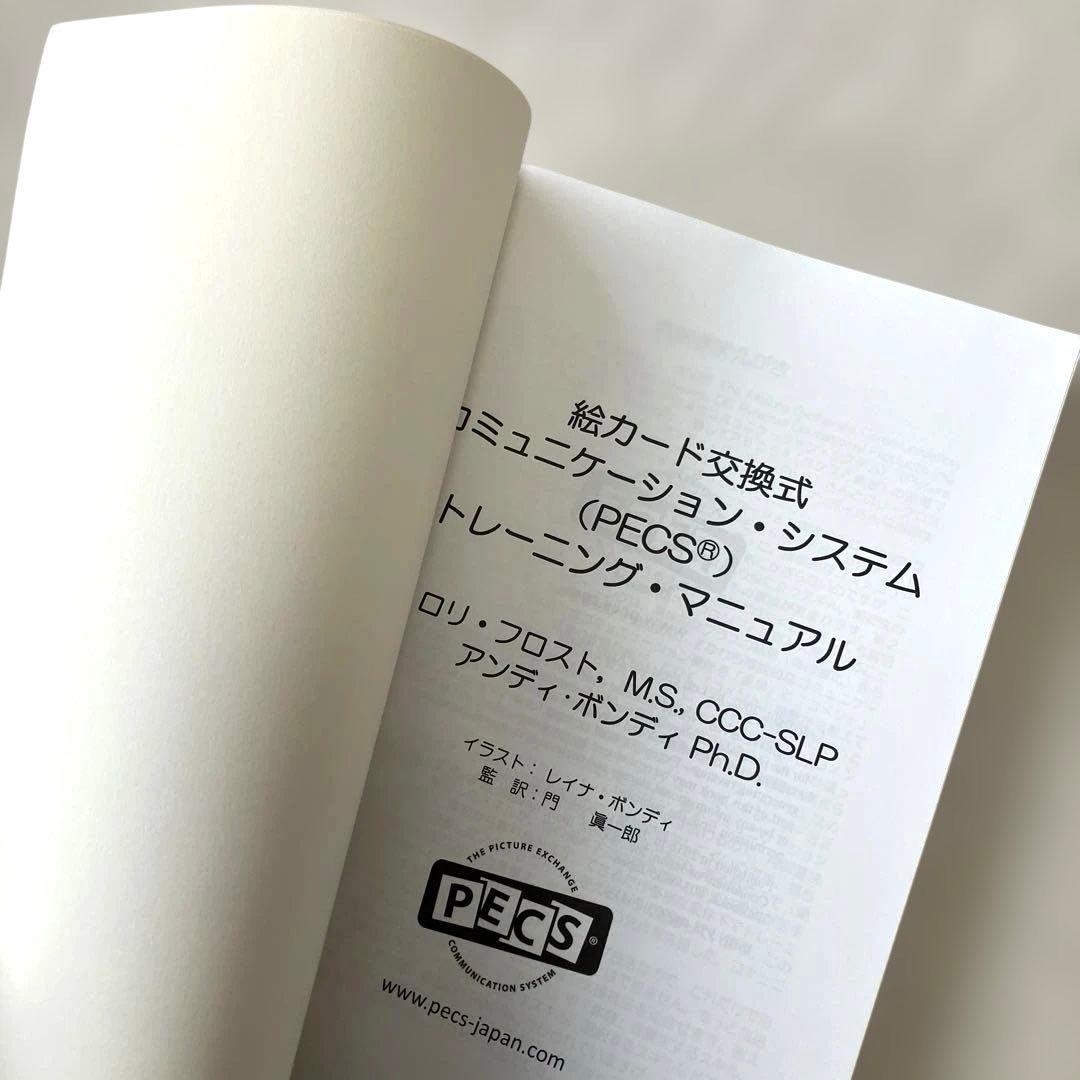 絵カード交換式
コミュニケーション・システム
（PECS®）
トレーニング・マニュアル
ロリ・フロスト, M.S., CCC-SLP
アンディ・ボンディ Ph.D.
イラスト： レイナ・ボンディ
監　訳：門　　眞一郎
THE PICTURE EXCHANGE
PECS®
COMMUNICATION SYSTEM
www.pecs-japan.com